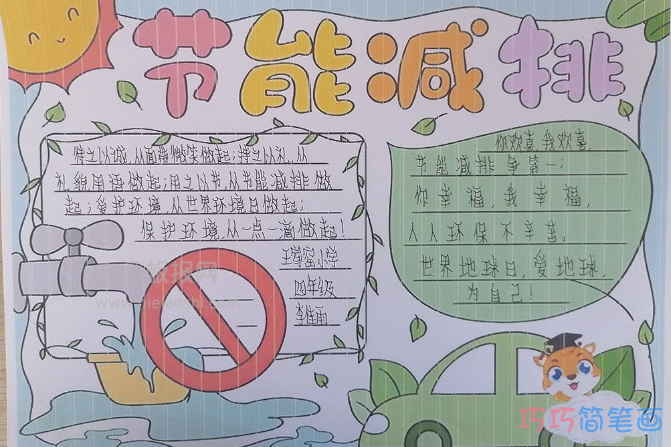 节能减排
待之以诚,从面带微笑做起;待之以礼,从
礼貌用语做起;用之以节,从节能减排做
起;爱护环境,从世界环境日做起;
保护环境,从一点一滴做起!
小学
四年级
李佳雨
你欢喜,我欢喜,
节能减排争第一;
你幸福,我幸福,
人人环保不辛苦。
世界地球日,爱地球,
为自己!
巧巧简笔画